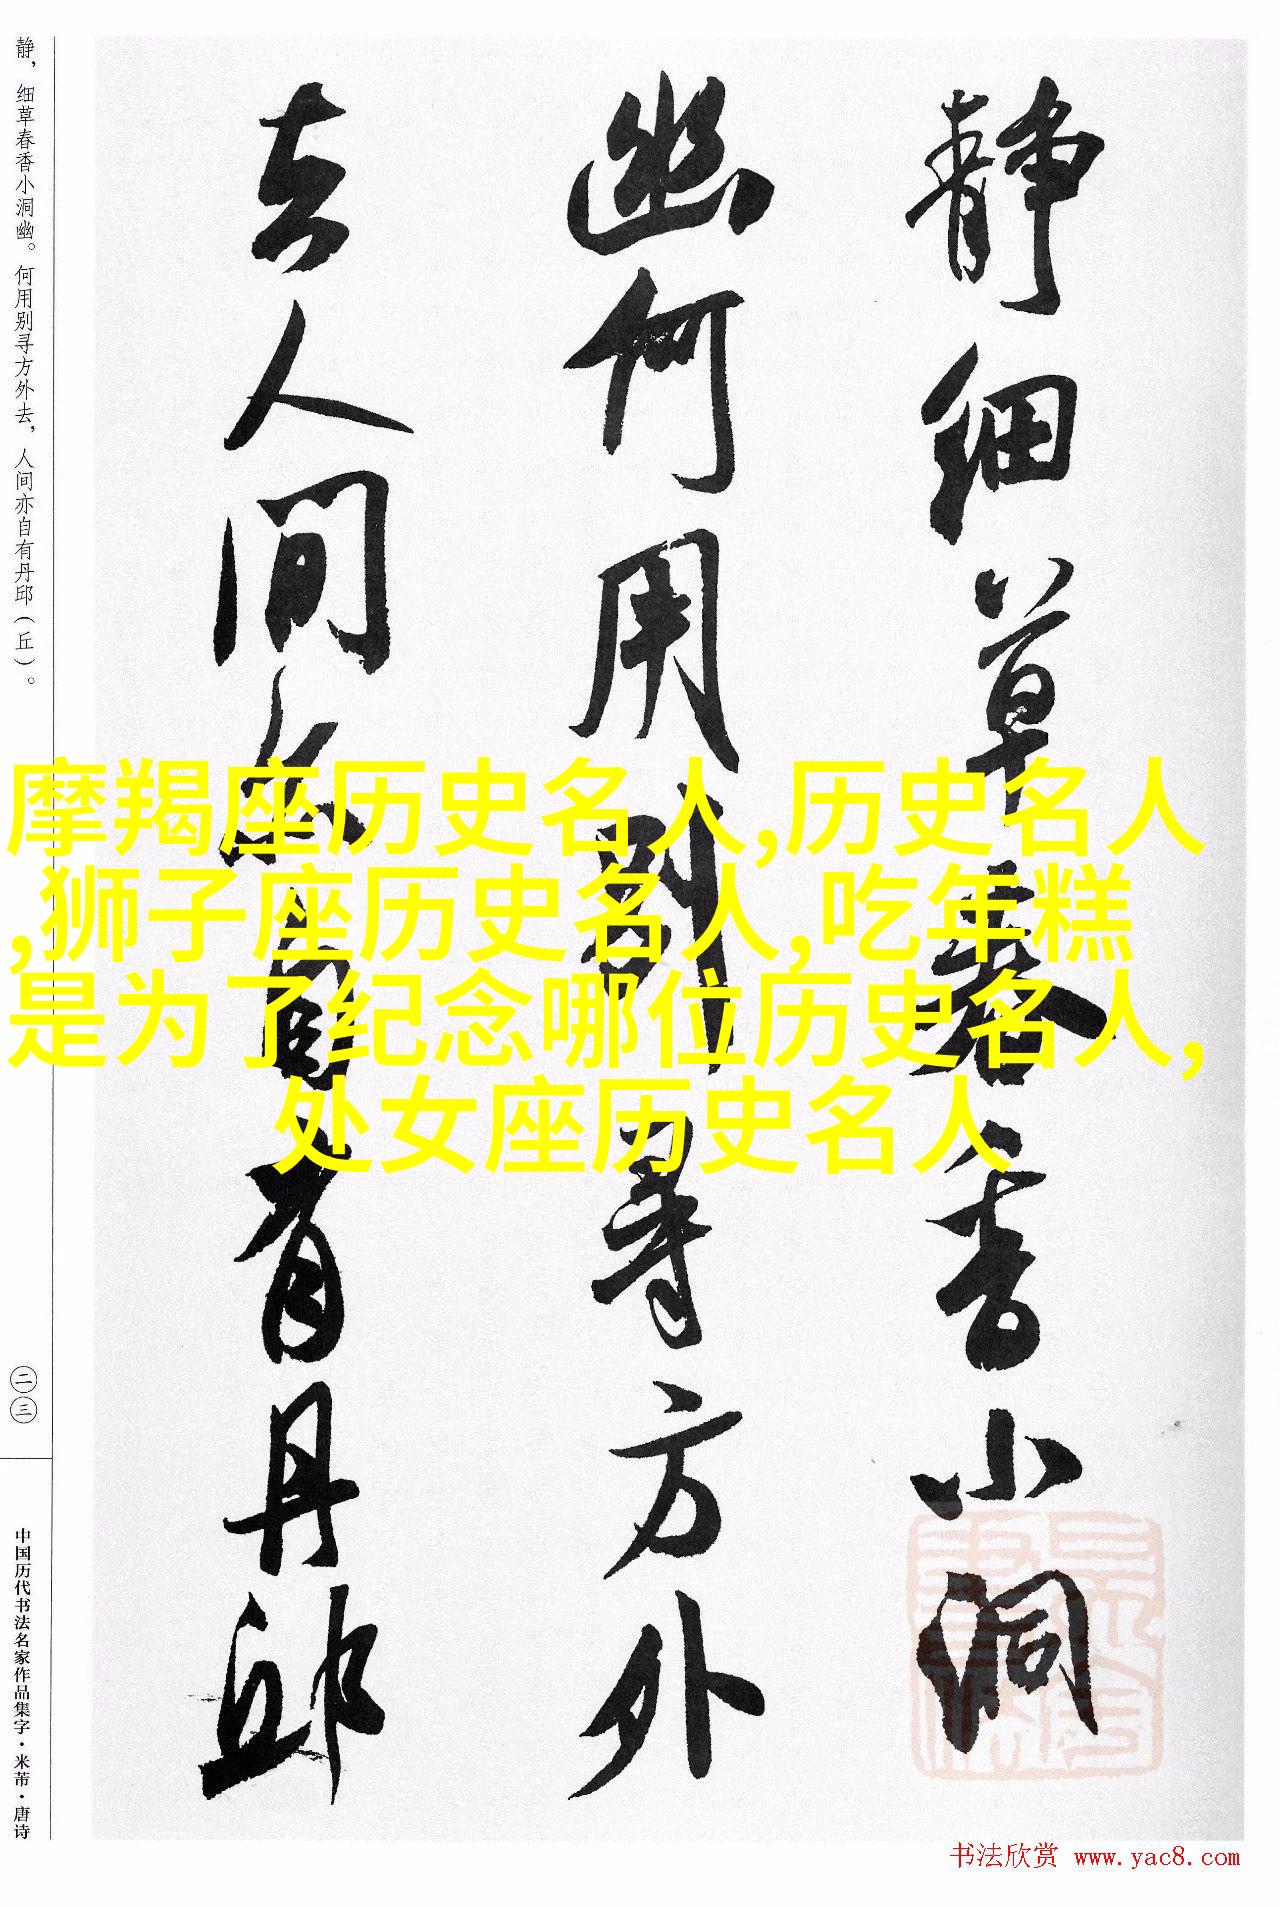 静细草春香小洞
幽何用别寻方外
去人间亦自有丹邱
静，细草春香小洞幽。何用别寻方外去，人间亦自有丹邱（丘）。
二三
中国历代书法名家作品集字·米芾·唐诗
摩羯座历史名人,历史名人
,狮子座历史名人,吃年糕
是为了纪念哪位历史名人,
处女座历史名人
书法欣赏 www.yac8.com